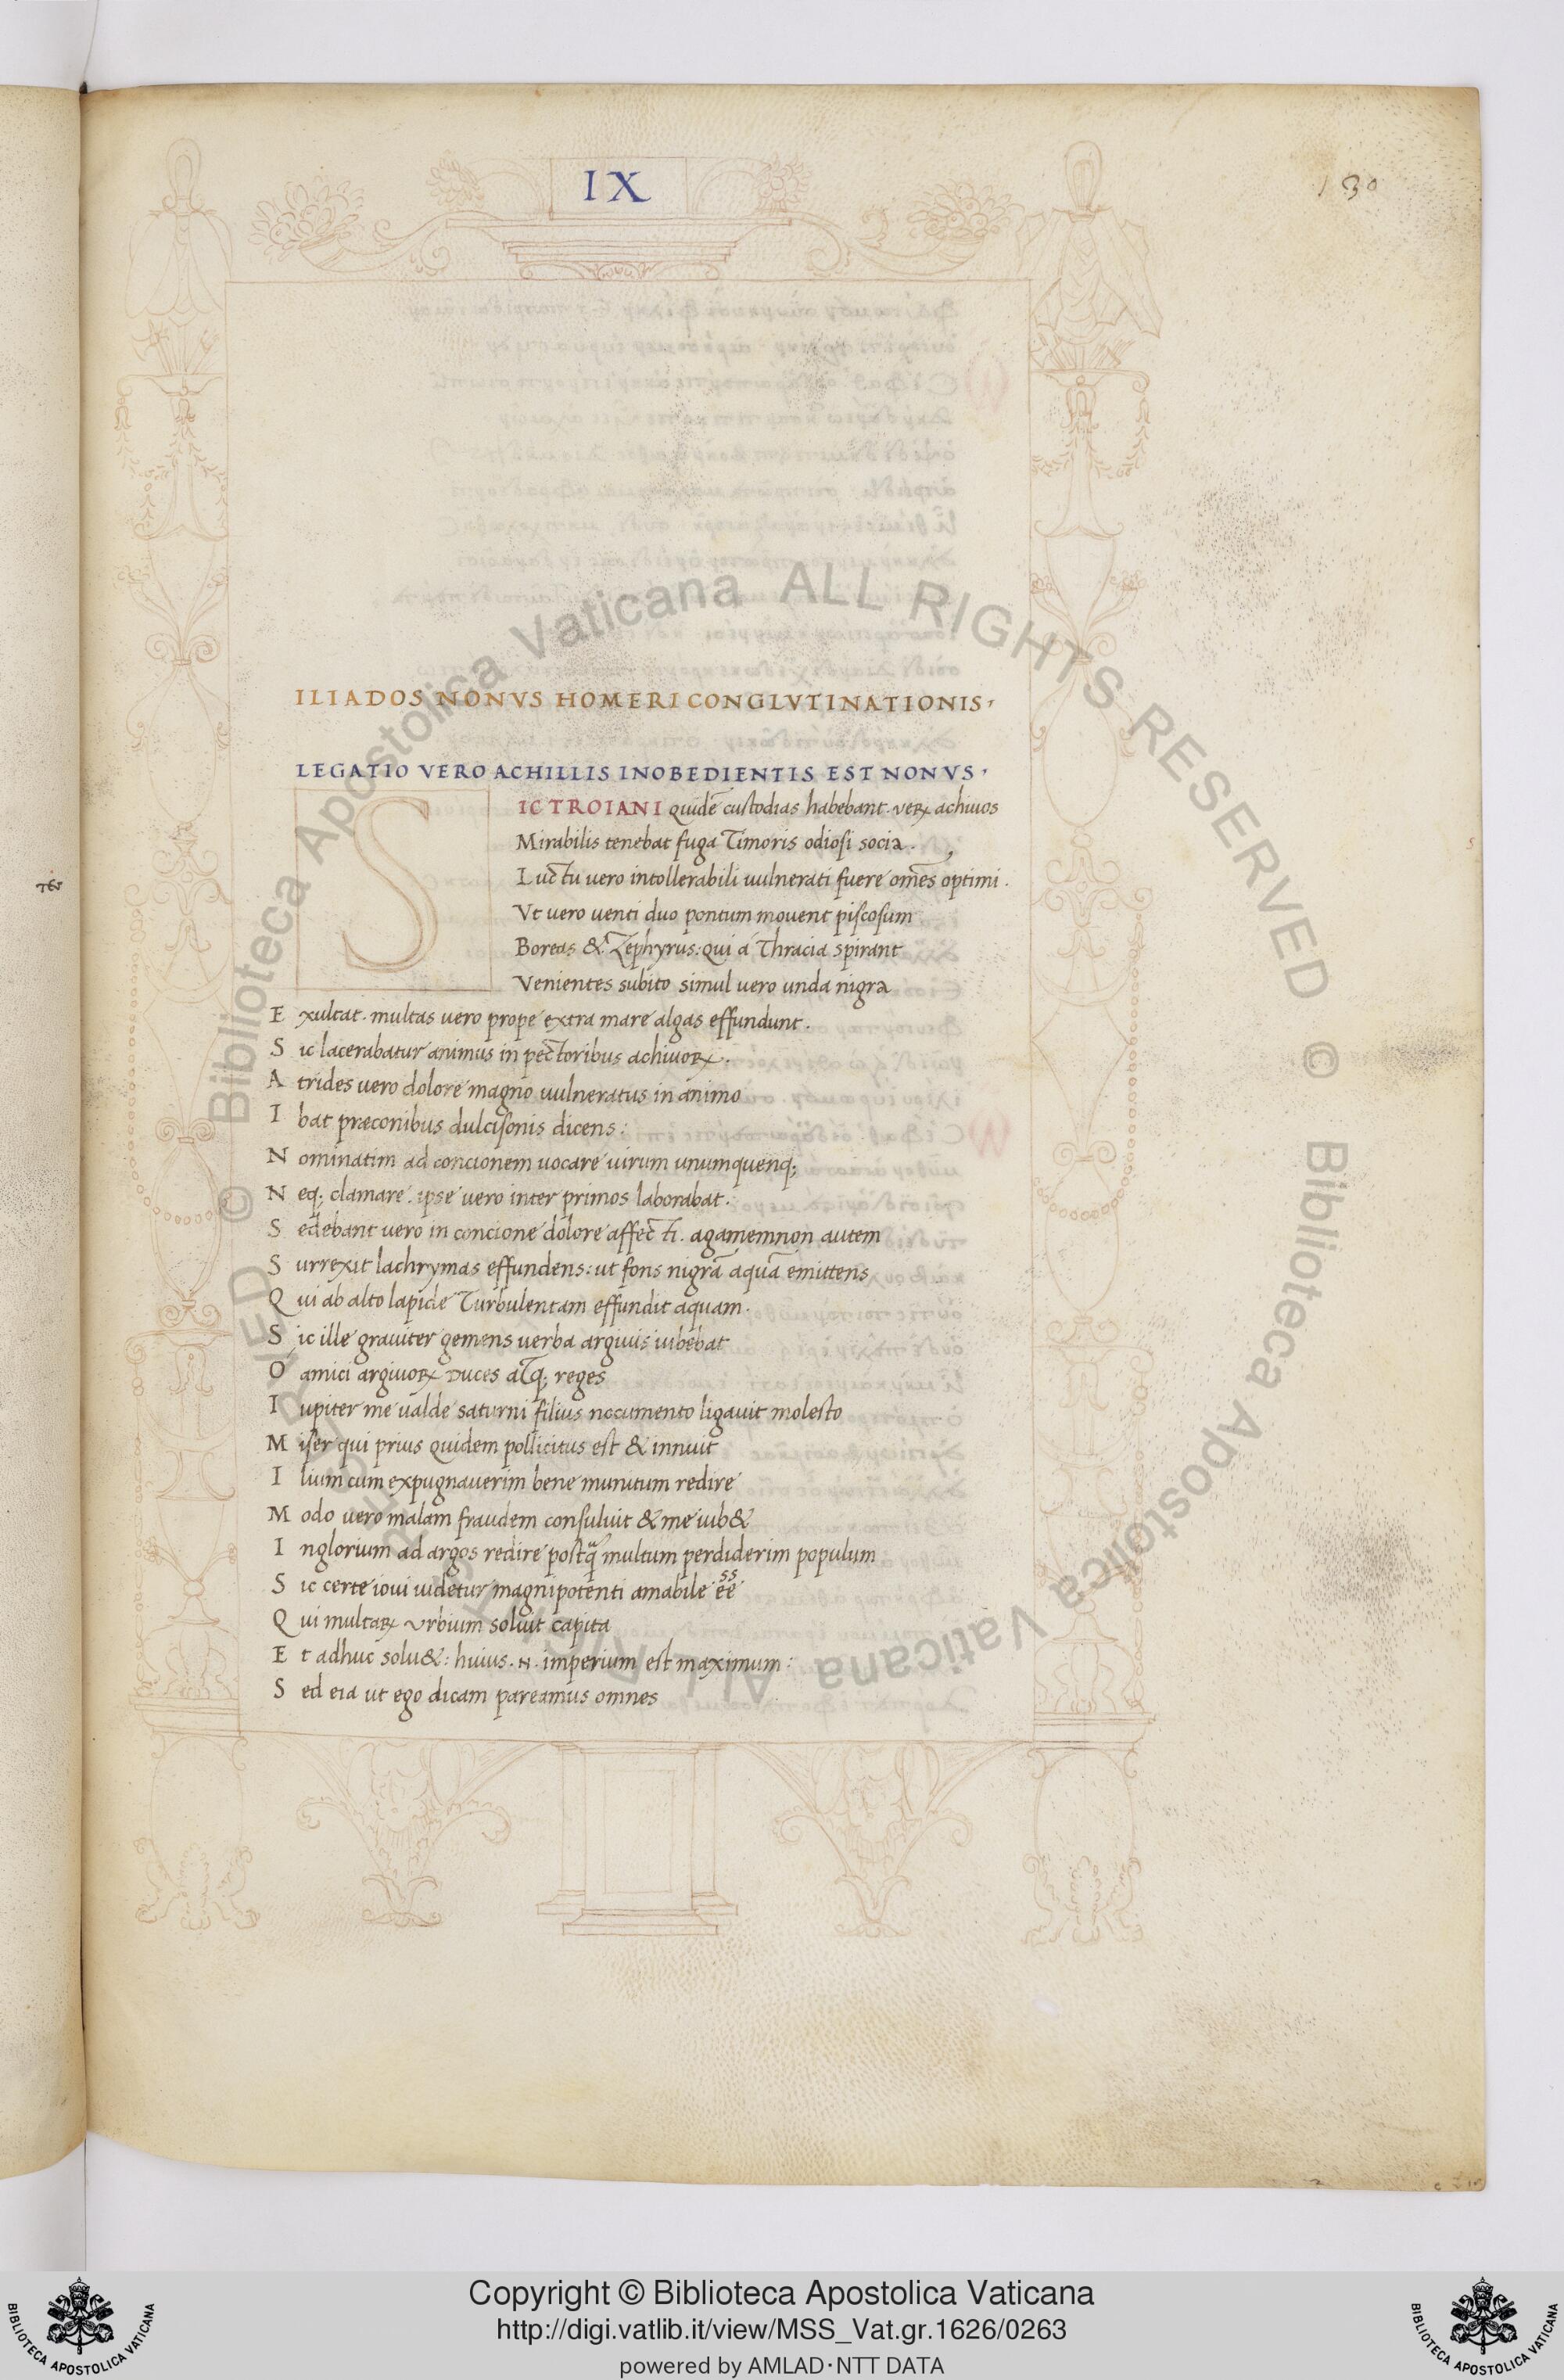 IX
130
ILIADOS NONVS HOMERI CONGLVTINATIONIS,
LEGATIO VERO ACHILLIS INOBEDIENTIS EST NONVS,
SIC TROIANI quidē custodias habebant. veꝝ achiuos
Mirabilis tenebat fuga Timoris odiosi socia.
Luctu vero intollerabili uulnerati fuere om̄es optimi.
Vt vero venti duo pontum movent piscosum
Boreas & Zephyrus: qui á Thracia spirant
Venientes subito simul vero unda nigra
Exultat. multas uero prope extra mare algas effundunt.
Sic lacerabatur animus in pectoribus achiuoꝝ.
Atrides vero dolore magno uulneratus in animo
Ibat præconibus dulcisonis dicens:
Nominatim ad concionem uocare uirum unumquenq;
Neq; clamare. ipse vero inter primos laborabat.
Sedebant vero in concione dolore affecti. agamemnon autem
Surrexit lachrymas effundens: ut fons nigrā aquā emittens
Qui ab alto lapide Turbulentam effundit aquam.
Sic ille grauiter gemens uerba argiuis iubebat
O amici argiuoꝝ duces atq; reges
Iupiter me ualde saturni filius nocumento ligauit molesto
Miser qui prius quidem pollicitus est & innuit
Ilium cum expugnauerim bene munitum redire
Modo vero malam fraudem consuluit & me iub&
Inglorium ad argos redire postq̄ multum perdiderim populum
Sic certe ioui uidetur magnipotenti amabile ēē
ss
Qui multaꝝ vrbium soluit capita
Et adhuc solu&: huius .N. imperium est maximum:
Sed eia ut ego dicam pareamus omnes
© Biblioteca Apostolica Vaticana ALL RIGHTS RESERVED © Biblioteca Apostolica Vaticana ALL RIGHTS RESERVED
Copyright © Biblioteca Apostolica Vaticana
http://digi.vatlib.it/view/MSS_Vat.gr.1626/0263
powered by AMLAD·NTT DATA
BIBLIOTECA APOSTOLICA VATICANA
BIBLIOTECA APOSTOLICA VATICANA